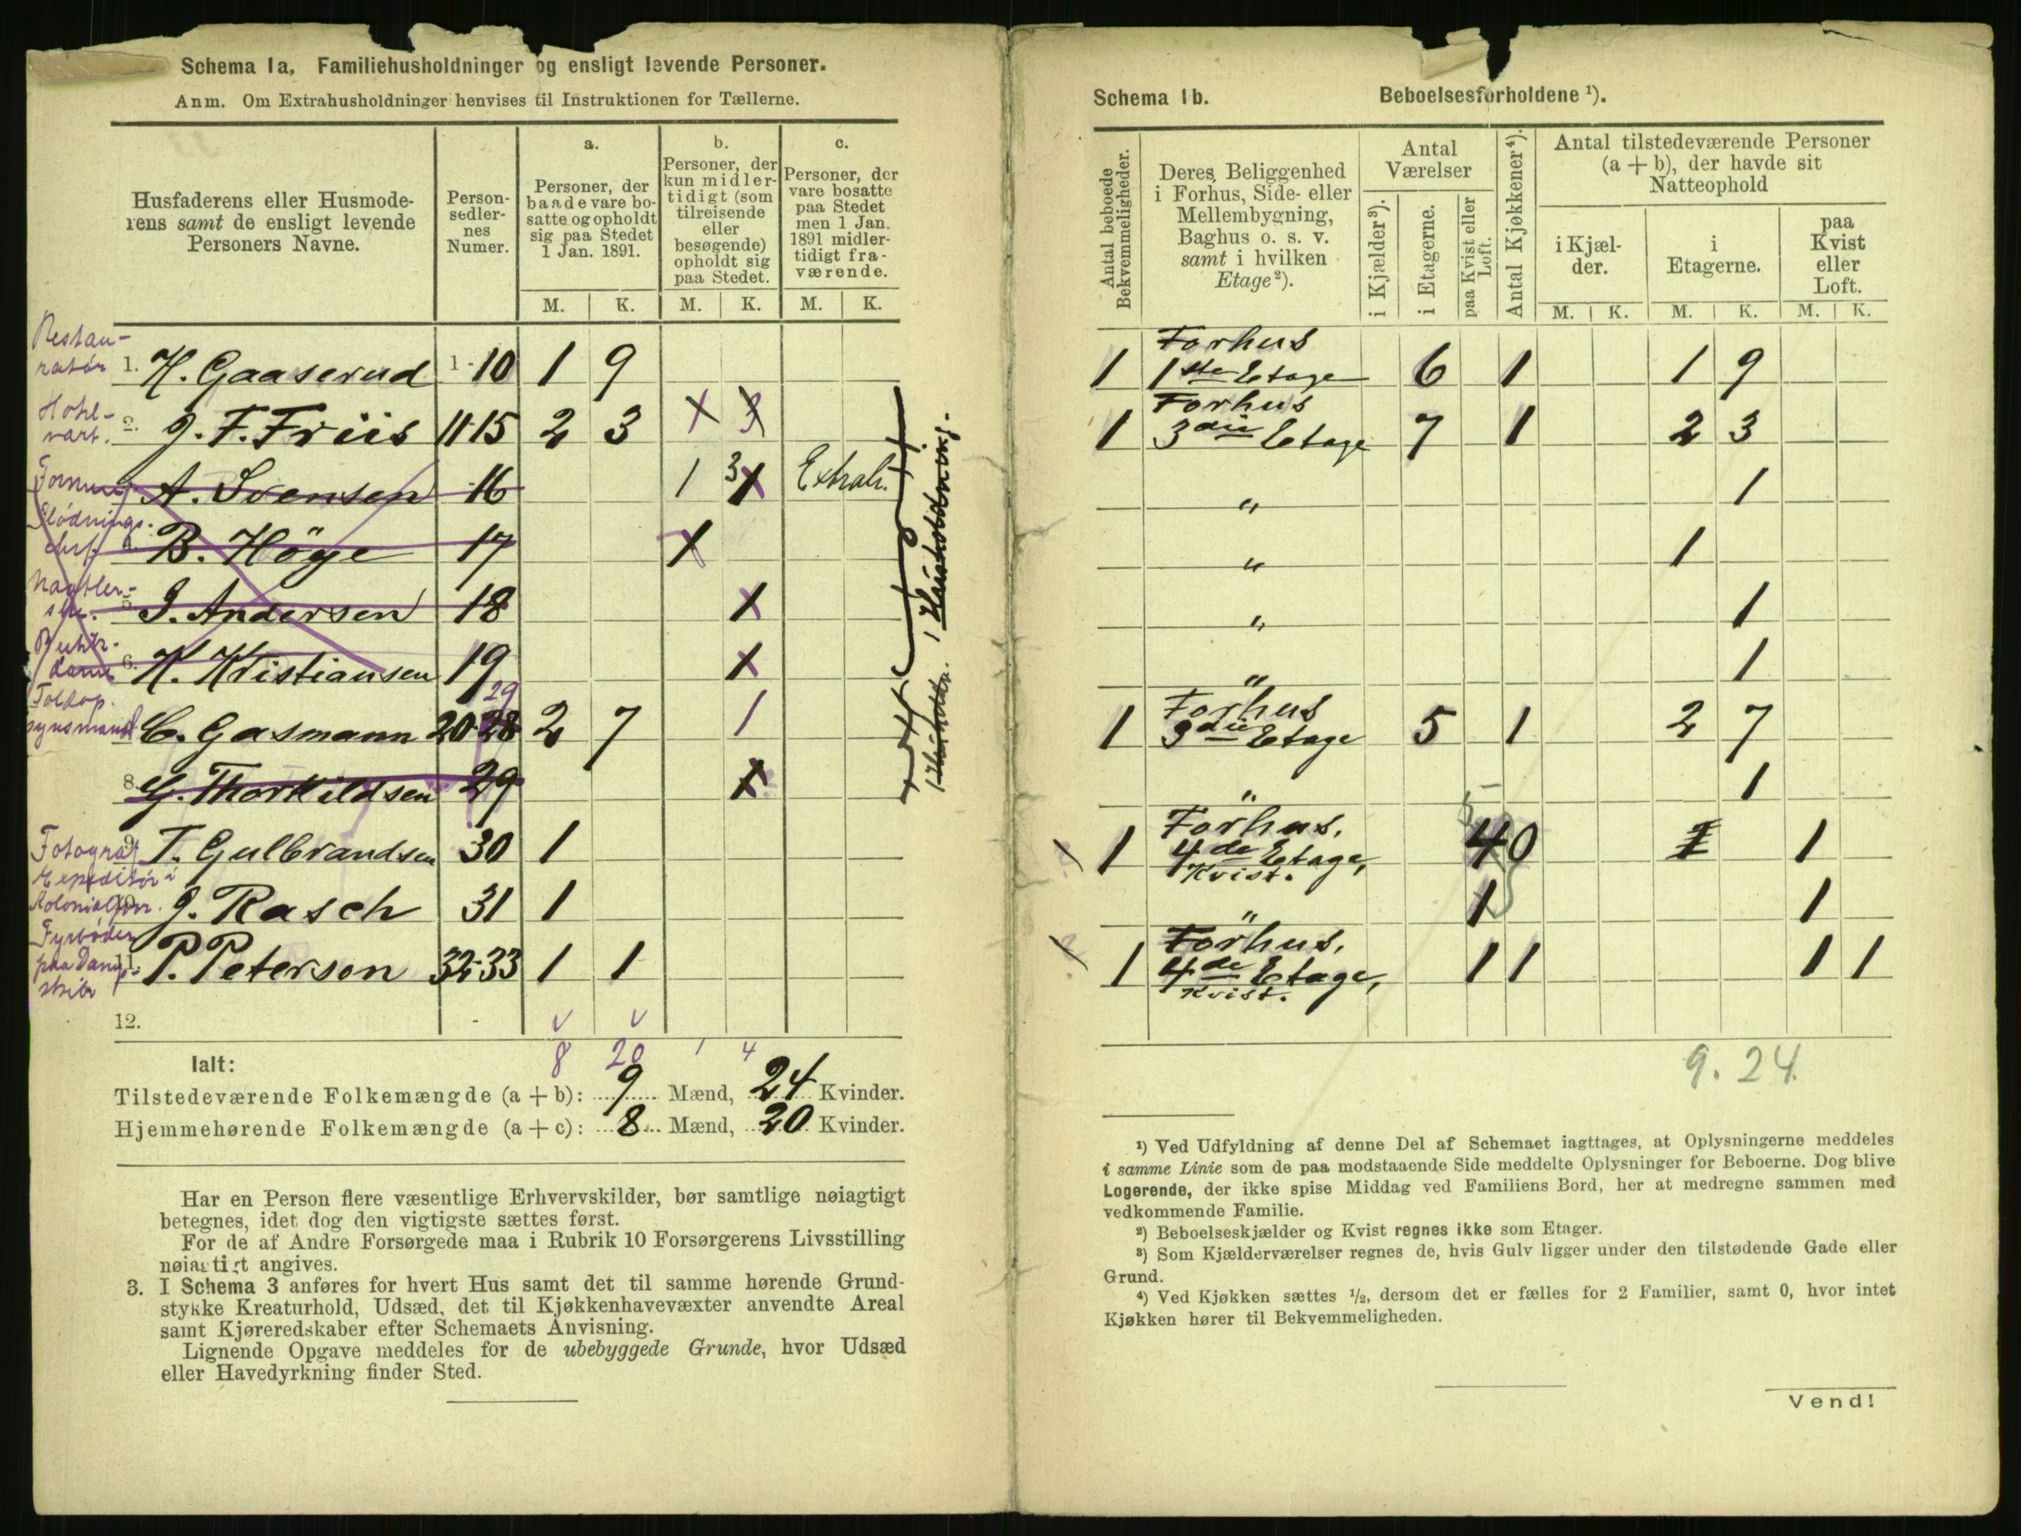 Schema 1a. Familiehusholdninger og ensligt levende Personer.
Anm. Om Extrahusholdninger henvises til Instruktionen for Tællerne.
Husfaderens eller Husmoderens samt de ensligt levende Personers Navne.
Personsedlernes Numer.
a.
Personer, der baade vare bosatte og opholdt sig paa Stedet 1 Jan. 1891.
b.
Personer, der kun midlertidigt (som tilreisende eller besøgende) opholdt sig paa Stedet.
c.
Personer, der vare bosatte paa Stedet men 1 Jan. 1891 midlertidigt fraværende.
M. K. M. K. M. K.
Restauratør 1. H. Gaaserud 1-10 1 9
Hotelvært. 2. J. F. Friis 11-15 2 3 1 3
A. Svensen 16 1 3 1 Extrah.
B. Höye 17 1
J. Andersen 18 1
6. K. Kristiansen 19 1
Toldopsynsmand C. Gasmann 20-28 29 2 7 1
8. G. Thorkildsen 29 1
Fotograf 9. T. Gulbrandsen 30 1
Expeditør i Kolonialforr. 10. J. Rasch 31 1
Fyrbøder paa Dampskib 11. P. Peterson 32-33 1 1
12.
v v
8 20 1 4
1 Husholdning.
Ialt:
Tilstedeværende Folkemængde (a + b): 9 Mænd, 24 Kvinder.
Hjemmehørende Folkemængde (a + c): 8 Mænd, 20 Kvinder.
Har en Person flere væsentlige Erhvervskilder, bør samtlige nøiagtigt
betegnes, idet dog den vigtigste sættes først.
For de af Andre Forsørgede maa i Rubrik 10 Forsørgerens Livsstilling
nøiagtigt angives.
3. I Schema 3 anføres for hvert Hus samt det til samme hørende Grund-
stykke Kreaturhold, Udsæd, det til Kjøkkenhavevæxter anvendte Areal
samt Kjøreredskaber efter Schemaets Anvisning.
Lignende Opgave meddeles for de ubebyggede Grunde, hvor Udsæd
eller Havedyrkning finder Sted.
Schema 1b. Beboelsesforholdene ¹).
Antal beboede Bekvemmeligheder.
Deres Beliggenhed i Forhus, Side- eller Mellembygning, Baghus o. s. v. samt i hvilken Etage²).
Antal Værelser
i Kjælder³).
i Etagerne.
paa Kvist eller Loft.
Antal Kjøkkener⁴).
Antal tilstedeværende Personer (a + b), der havde sit Natteophold
i Kjælder.
i Etagerne.
paa Kvist eller Loft.
M. K. M. K. M. K.
1 Forhus 1ste Etage 6 1 1 9
1 Forhus 3die Etage 7 1 2 3
" 1
" 1
" 1
" 1
1 Forhus 3die Etage 5 1 2 7
" 1
1 Forhus, 4de Etage, Kvist. 4 0 1 1
" 1 1
1 Forhus, 4de Etage, Kvist. 1 1 1 1
9. 24.
¹) Ved Udfyldning af denne Del af Schemaet iagttages, at Oplysningerne meddeles
i samme Linie som de paa modstaaende Side meddelte Oplysninger for Beboerne. Dog blive
Logerende, der ikke spise Middag ved Familiens Bord, her at medregne sammen med
vedkommende Familie.
²) Beboelseskjælder og Kvist regnes ikke som Etager.
³) Som Kjælderværelser regnes de, hvis Gulv ligger under den tilstødende Gade eller
Grund.
⁴) Ved Kjøkken sættes ½, dersom det er fælles for 2 Familier, samt 0, hvor intet
Kjøkken hører til Bekvemmeligheden.
Vend!